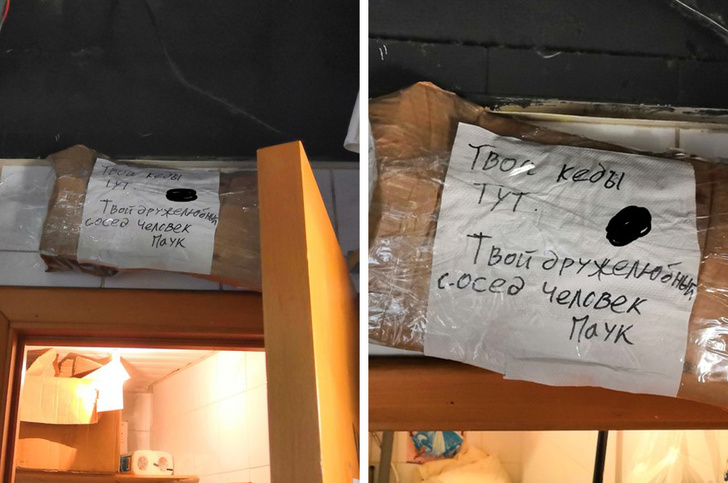 Твои кеды
тут
Твой дружелюбный
сосед человек
Паук
Твои кеды
тут.
Твой дружелюбный
сосед человек
Паук